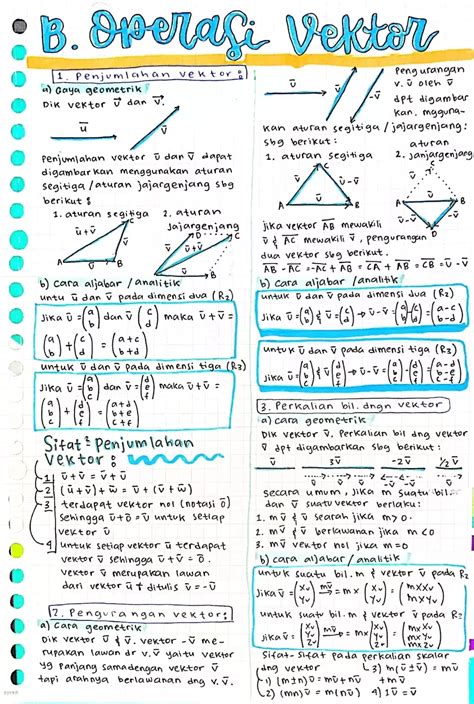 B. Operasi Vektor
1. Penjumlahan vektor:
a) Gaya geometrik
Dik vektor u dan v.
u
v
Penjumlahan vektor ū dan v̄ dapat
digambarkan menggunakan aturan
segitiga / aturan jajargenjang sbg
berikut :
1. aturan segitiga
2. aturan
jajargenjang
A
B
C
ū
v̄
ū+v̄
A
B
C
D
ū
v̄
ū+v̄
b) Cara aljabar / analitik
untu ū dan v̄ pada dimensi dua (R₂)
Jika ū = (a b) dan v̄ (c d) maka ū + v̄ =
(a b) + (c d) = (a+c b+d)
untuk ū dan v̄ pada dimensi tiga (R₃)
Jika ū = (a b c) dan v̄ = (d e f) maka ū + v̄ =
(a b c) + (d e f) = (a+d b+e c+f)
Sifat² Penjumlahan
Vektor :
1 ū + v̄ = v̄ + ū
2 (ū + v̄) + w̄ = ū + (v̄ + w̄)
3 terdapat vektor nol (notasi ō)
Sehingga ū + ō = ū untuk setiap
vektor ū
4 untuk setiap vektor ū terdapat
vektor v̄ sehingga ū + v̄ = ō.
vektor v̄ merupakan lawan
dari vektor ū & ditulis v̄ = -ū
2. Pengurangan vektor:
a) Cara geometrik
Dik vektor ū & v̄. vektor -v̄ me-
rupakan lawan dr v. v̄ yaitu vektor
yg panjang sama dengan vektor v̄
tapi arahnya berlawanan dng v. v̄.
ū
v̄
-v̄
Pengurangan
v. ū oleh v̄
dpt digambar
kan. mgguna-
kan aturan segitiga / jajargenjang:
sbg berikut :
1. aturan segitiga
aturan
2. janjargenjang
A
B
C
v̄
ū
ū-v̄
A
B
C
D
ū-v̄
jika vektor AB mewakili
ū & AC mewakili v̄, pengurangan
dua vektor sbg berikut.
AB - AC = -AC + AB = CA + AB = CB = ū - v̄
b) cara aljabar / analitik
untuk ū dan v̄ pada dimensi dua (R₂)
Jika ū = (a b) & v̄ = (c d) → ū - v̄ = (a b) - (c d) = (a-c b-d)
untuk ū dan v̄ pada dimensi tiga (R₃)
Jika ū = (a b c) & v̄ = (d e f) → ū - v̄ = (a b c) - (d e f) = (a-d b-e c-f)
3. Perkalian bil. dngn vektor
a) cara geometrik
Dik vektor v̄. Perkalian bil dng vektor
v̄ dpt digambarkan sbg berikut :
v̄ 3v̄ -2v̄ 1/2 v̄
v̄ v̄ v̄ -v̄ -v̄
secara umum, jika m suatu bil.
dan v̄ suatu vektor berlaku:
1. mv̄ & v̄ searah jika m > 0.
2. mv̄ & v̄ berlawanan jika m < 0
3. mv̄ vektor nol jika m = 0
b) cara aljabar / analitik
untuk suatu bil. m & vektor v̄ pada R₂
Jika v̄ = (xv yv) → mv̄ = m × (xv yv) = (m×xv m×yv)
untuk suatu bil. m & vektor v̄ pada R₃
jika v̄ = (xv yv zv) → mv̄ = m × (xv yv zv) = (m×xv m×yv m×zv)
Sifat-sifat pada perkalian skalar
dng vektor
3) m(ū ± v̄) = mū
1) (m±n)v̄ = mv̄ + nv̄
+ mv̄
2) (mn)v̄ = m(nv̄)
4) 1v̄ = v̄